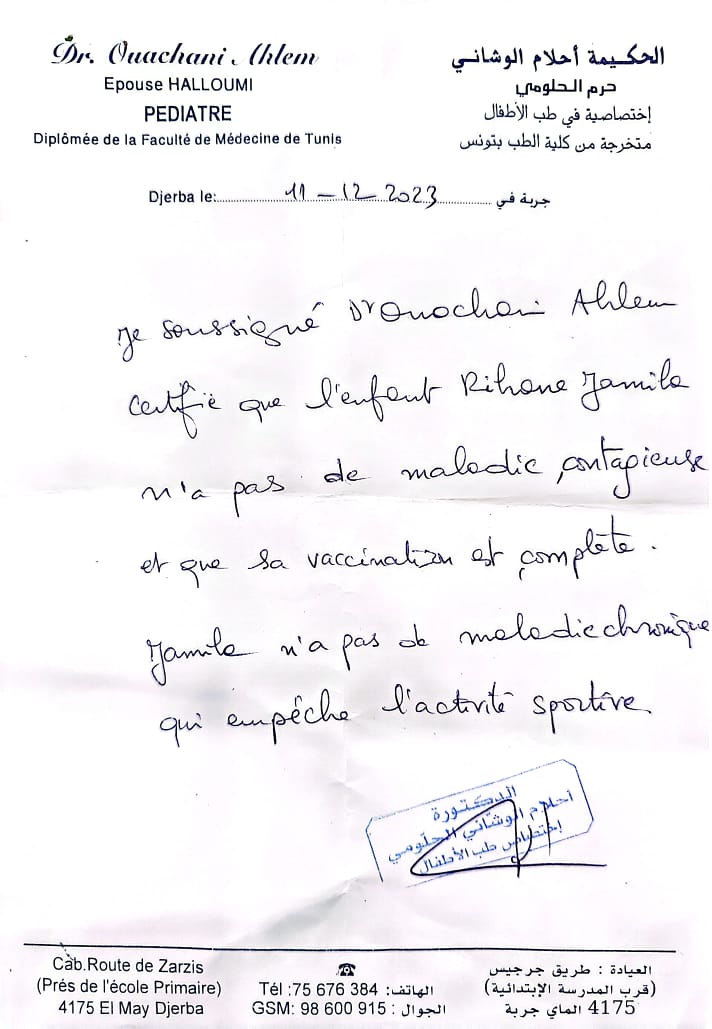 Dr. Ouachani Ahlem
Epouse HALLOUMI
PEDIATRE
Diplômée de la Faculté de Médecine de Tunis
الحكيمة أحلام الوشاني
حرم الحلومي
إختصاصية في طب الأطفال
متخرجة من كلية الطب بتونس
Djerba le: 11-12-2023 جربة في
Je soussigné Dr Ouachani Ahlem
Certifie que l'enfant Rihane Jamila
n'a pas de maladie contagieuse
et que sa vaccination est complète.
Jamila n'a pas de maladie chronique
qui empêche l'activité sportive.
الدكتورة
أحلام الوشاني الحلومي
إختصاص طب الأطفال
Cab.Route de Zarzis
(Prés de l'école Primaire)
4175 El May Djerba
☎
Tél :75 676 384 الهاتف:
GSM: 98 600 915 : الجوال
العيادة : طريق جرجيس
(قرب المدرسة الإبتدائية)
4175 الماي جربة